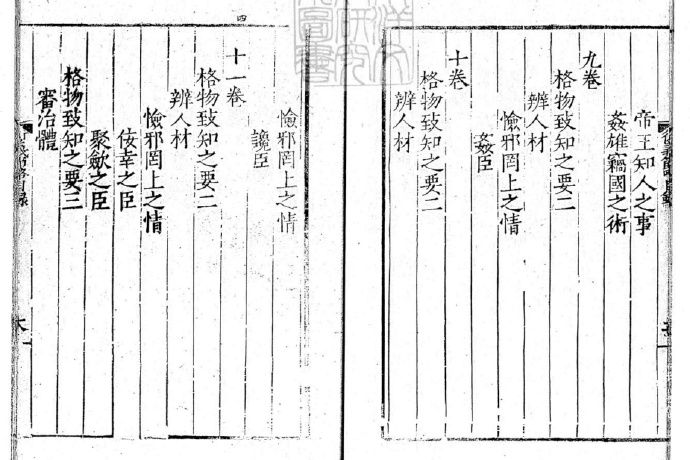 帝王知人之事
姦雄竊國之術
九卷
格物致知之要二
辨人材
憸邪罔上之情
姦臣
十卷
格物致知之要二
辨人材
憸邪罔上之情
讒臣
十一卷
格物致知之要二
辨人材
憸邪罔上之情
佞幸之臣
聚歛之臣
格物致知之要三
審治體
四